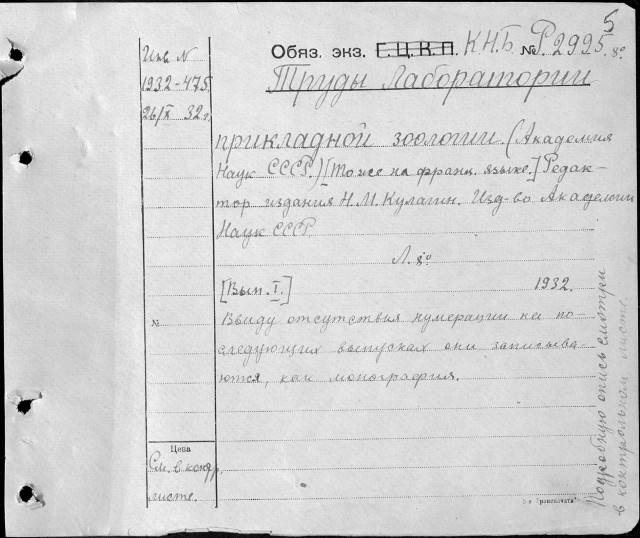 5
Инв N
1932-475
26/X 32 г.
Обяз. экз. Г.Ц.К.П. К.Н.Б. № Р.2995 8°
Труды Лаборатории
прикладной зоологии. (Академия
Наук СССР.) [То же на франц. языке.] Редак-
тор издания Н.М. Кулагин. Изд-во Академии
Наук СССР.
Л. 8°
[Вып. I.] 1932.
№
Ввиду отсутствия нумерации на по-
следующих выпусках они записыва-
ются, как монография.
Цена
См. в контр.
листе.
Подробную опись смотри
в контрольном листе.